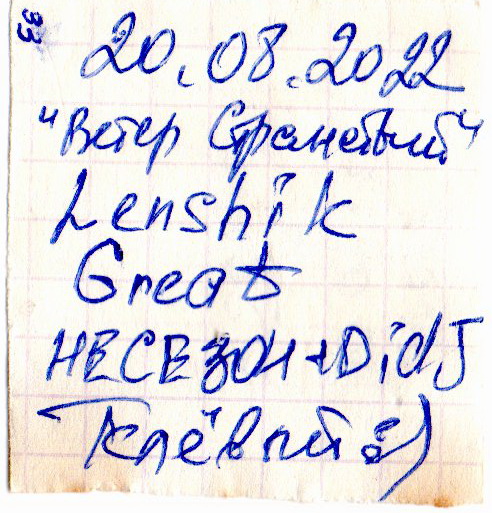 33
20.08.2022
"Ветер Странствий"
Lenshik
Great
НЕСЕЗОН + DidJ
Клёвый :)